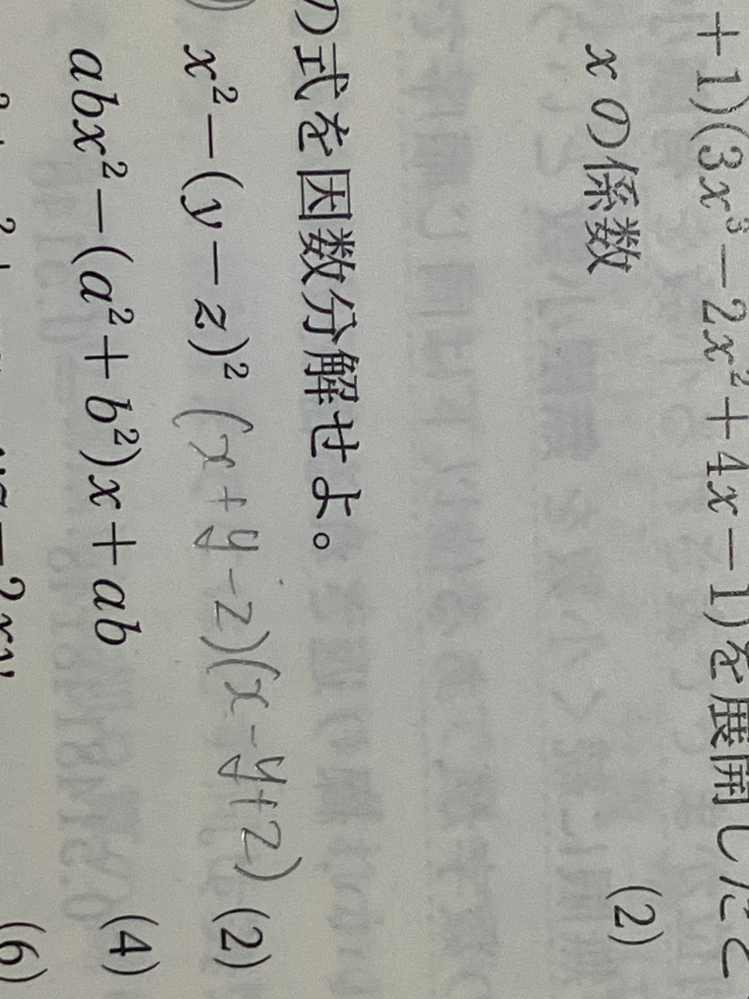 +1)(3x³−2x²+4x−1)を展開したと
xの係数 (2)
の式を因数分解せよ。
x²−(y−z)² (x+y−z)(x−y+z) (2)
abx²−(a²+b²)x+ab (4)
(6)